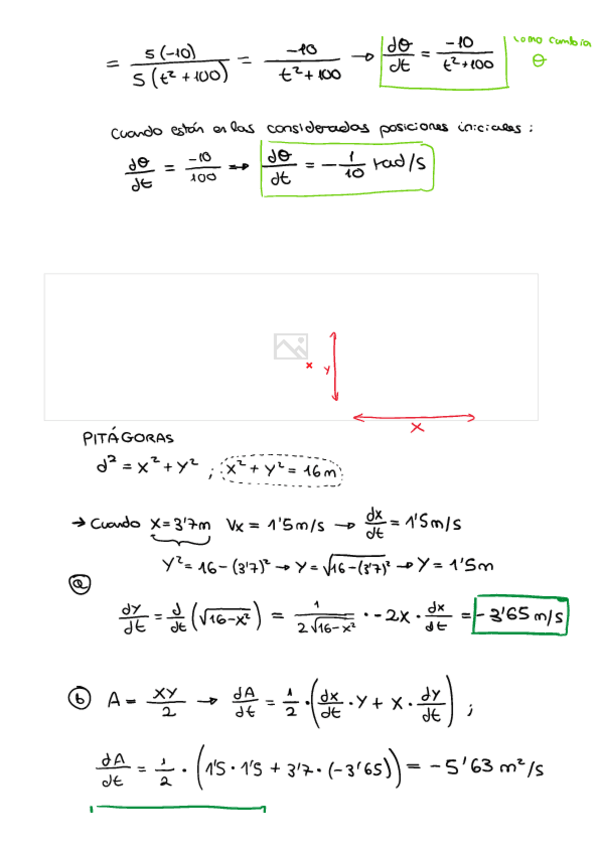 = 5(-10) / 5(t²+100) = -10 / t²+100 → dθ/dt = -10 / t²+100 como cambia θ
Cuando están en las consideradas posiciones iniciales:
dθ/dt = -10/100 → dθ/dt = -1/10 rad/s
x y
x
PITÁGORAS
d² = x² + y² ; x² + y² = 16m
→ Cuando x = 3'7m Vx = 1'5m/s → dx/dt = 1'5m/s
y² = 16 - (3'7)² → y = √16-(3'7)² → y = 1'5m
a
dy/dt = d/dt (√16-x²) = 1 / 2√16-x² · -2x · dx/dt = -3'65 m/s
b A = xy/2 → dA/dt = 1/2 · (dx/dt · y + x · dy/dt) ;
dA/dt = 1/2 · (1'5 · 1'5 + 3'7 · (-3'65)) = -5'63 m²/s